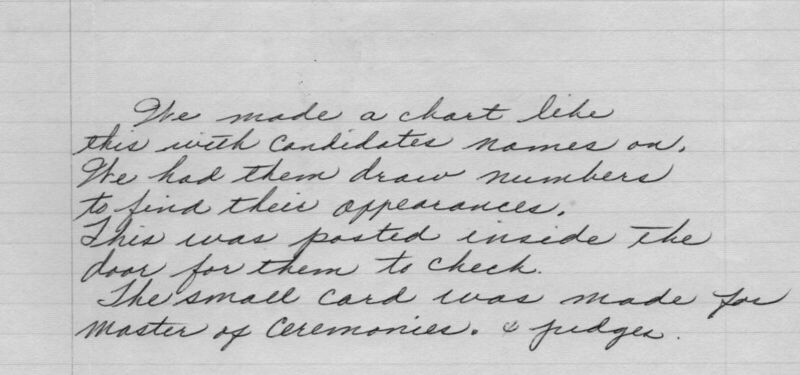 We made a chart like
this with candidates names on.
We had them draw numbers
to find their appearances.
This was posted inside the
door for them to check.
The small card was made for
Master of Ceremonies. & judges.